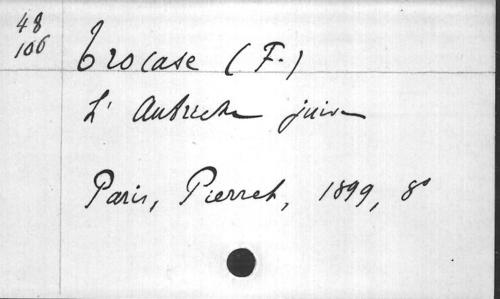 48
106
Trocase (F.)
L'Autriche juive
Paris, Pierret, 1899, 8°